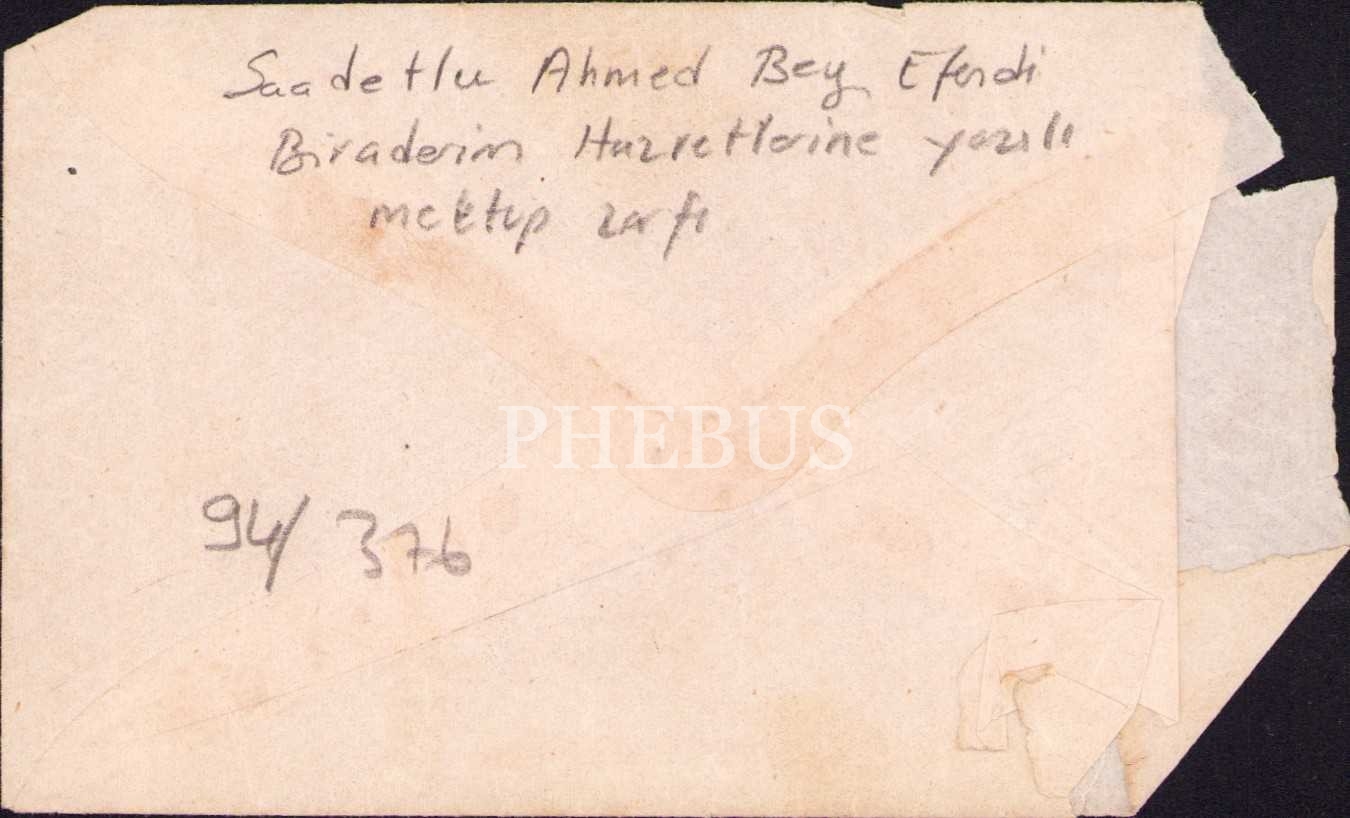 Saadetlu Ahmed Bey Efendi
Biraderim Hazretlerine yazılı
mektup zarfı
PHEBUS
94/376